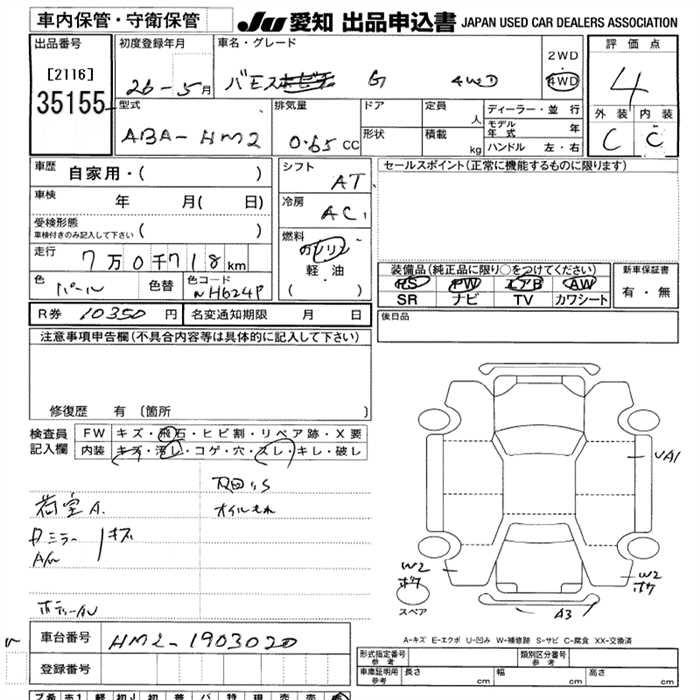 車内保管・守衛保管
JU 愛知 出品申込書 JAPAN USED CAR DEALERS ASSOCIATION
出品番号
[2116]
35155
初度登録年月
26-5月
車名・グレード
バモス G 4WD
2WD
4WD
評価点
4
外装 内装
C C
型式
ABA-HM2
排気量
0.65 CC
ドア
形状
定員
人
積載
kg
ディーラー・並行
モデル年式 年
ハンドル 左・右
車歴 自家用・( )
車検 年 月( 日)
受検形態
車検付きのみ記入して下さい ( )
走行 7万0千718km
色 パール 色替 色コード NH624P
シフト
AT
冷房
AC
燃料
ガソリン
軽油
( )
セールスポイント(正常に機能するものに限ります)
装備品(純正品に限り○をつけてください)
PS PW エアB AW
SR ナビ TV カワシート
新車保証書
有・無
R券 10350円 名変通知期限 月 日
後日品
注意事項申告欄(不具合内容等は具体的に記入して下さい)
修復歴 有〔箇所 〕
検査員記入欄
FW キズ・飛石・ヒビ割・リペア跡・X要
内装 キズ・汚レ・コゲ・穴・スレ・キレ・破レ
荷室A
オイルもれ
ミラー キズ
A/W
VA1
W2
W2
A3
スペア
A-キズ E-エクボ U-凹み W-補修跡 S-サビ C-腐食 XX-交換済
車台番号 HM2-1903020
登録番号
形式指定番号 参考
類別区分番号 参考
車庫証明用 参考 長さ cm 幅 cm 高さ cm